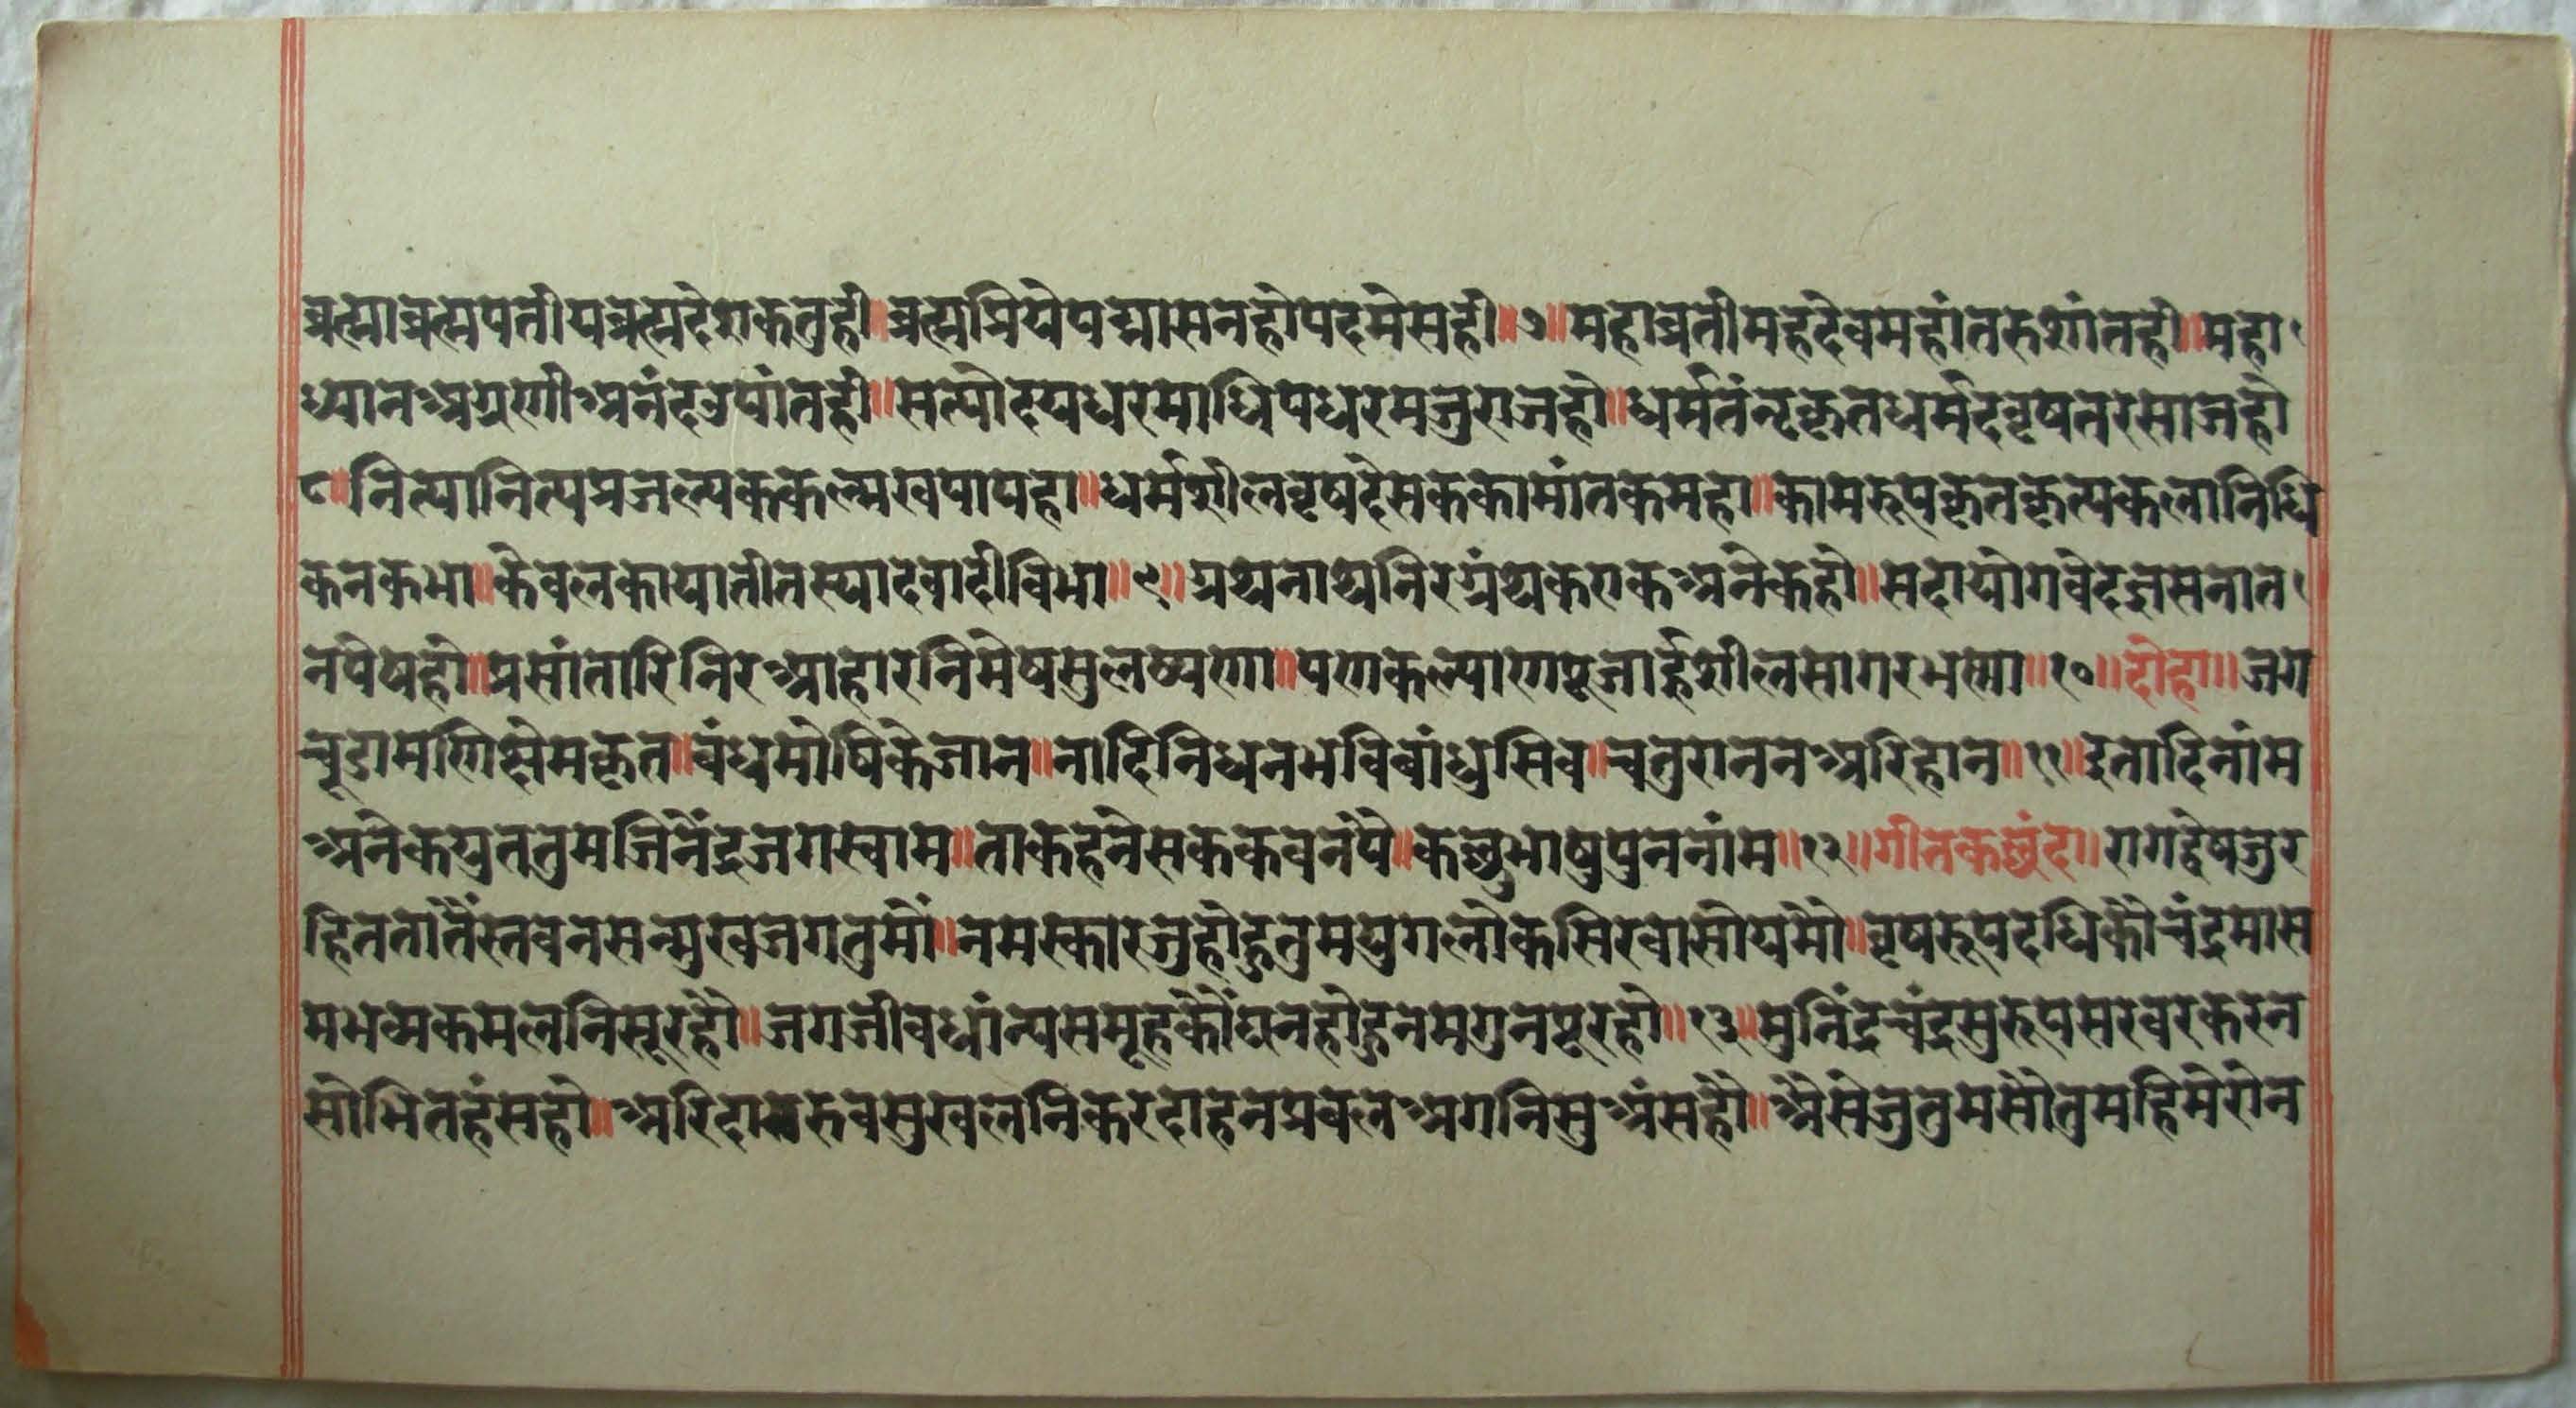 ब्रह्माब्रह्मपतीयब्रह्मदेशकतुही॥ब्रह्मप्रियेपद्मासनहोपदमेसही॥७॥महाव्रतीमहदेवमहांतरुशांतही॥महा
ध्यानअग्रणीअनंदउपांतही॥सत्योदयधरमाधिपधरमजुराजहो॥धर्मतंत्रकृतधर्मदवृषतरसाजहो
८॥नित्यानित्यप्रजल्पककल्मखपापहा॥धर्मशीलवृषदेसककामांतकमहा॥कामरूपकृतकृत्यकलानिधि
कनकभा॥केवलकायातीतस्यादवादीविभा॥९॥ग्रथनाथनिरग्रंथकराकअनेकहो॥सदायोगवेदज्ञसनात
नपेषहो॥प्रसांतारिनिरआहारनिमेषसुलष्यणा॥पणकल्याणपूजार्हशीलसागरभस्मा॥१०॥दोहा॥जग
चूडामणिक्षेमकृत॥बंधमोषिकेजान॥नादिनिधनभविबांधुसिव॥चतुराननअरिहान॥११॥इनादिनांम
अनेकयुततुमजिनेंद्रजगस्वाम॥ताकहनेसककवनंपे॥कछुभाषुपुननांम॥१२॥गीतकछंदा॥रागद्वेषजुर
हिततातैंस्तवनसन्मुखजगतुमौं॥नमस्कारजुहोहुतुमयुगलोकसिरवासीयमौ॥वृषरूपदधिकौचंद्रमास
मभव्यकमलनिसूरहौ॥जगजीवधांन्यसमूहकौंघनहोहुनमगुनपूरहो॥१३॥मुनिंद्रचंद्रसुरूपसरवरकरन
सोभितहंसहो॥अरिदारुवसुखलनिकरदाहनप्रबलअगनिसुअंसहौ॥अैसेजुतुमसौतुमहिमेरोन